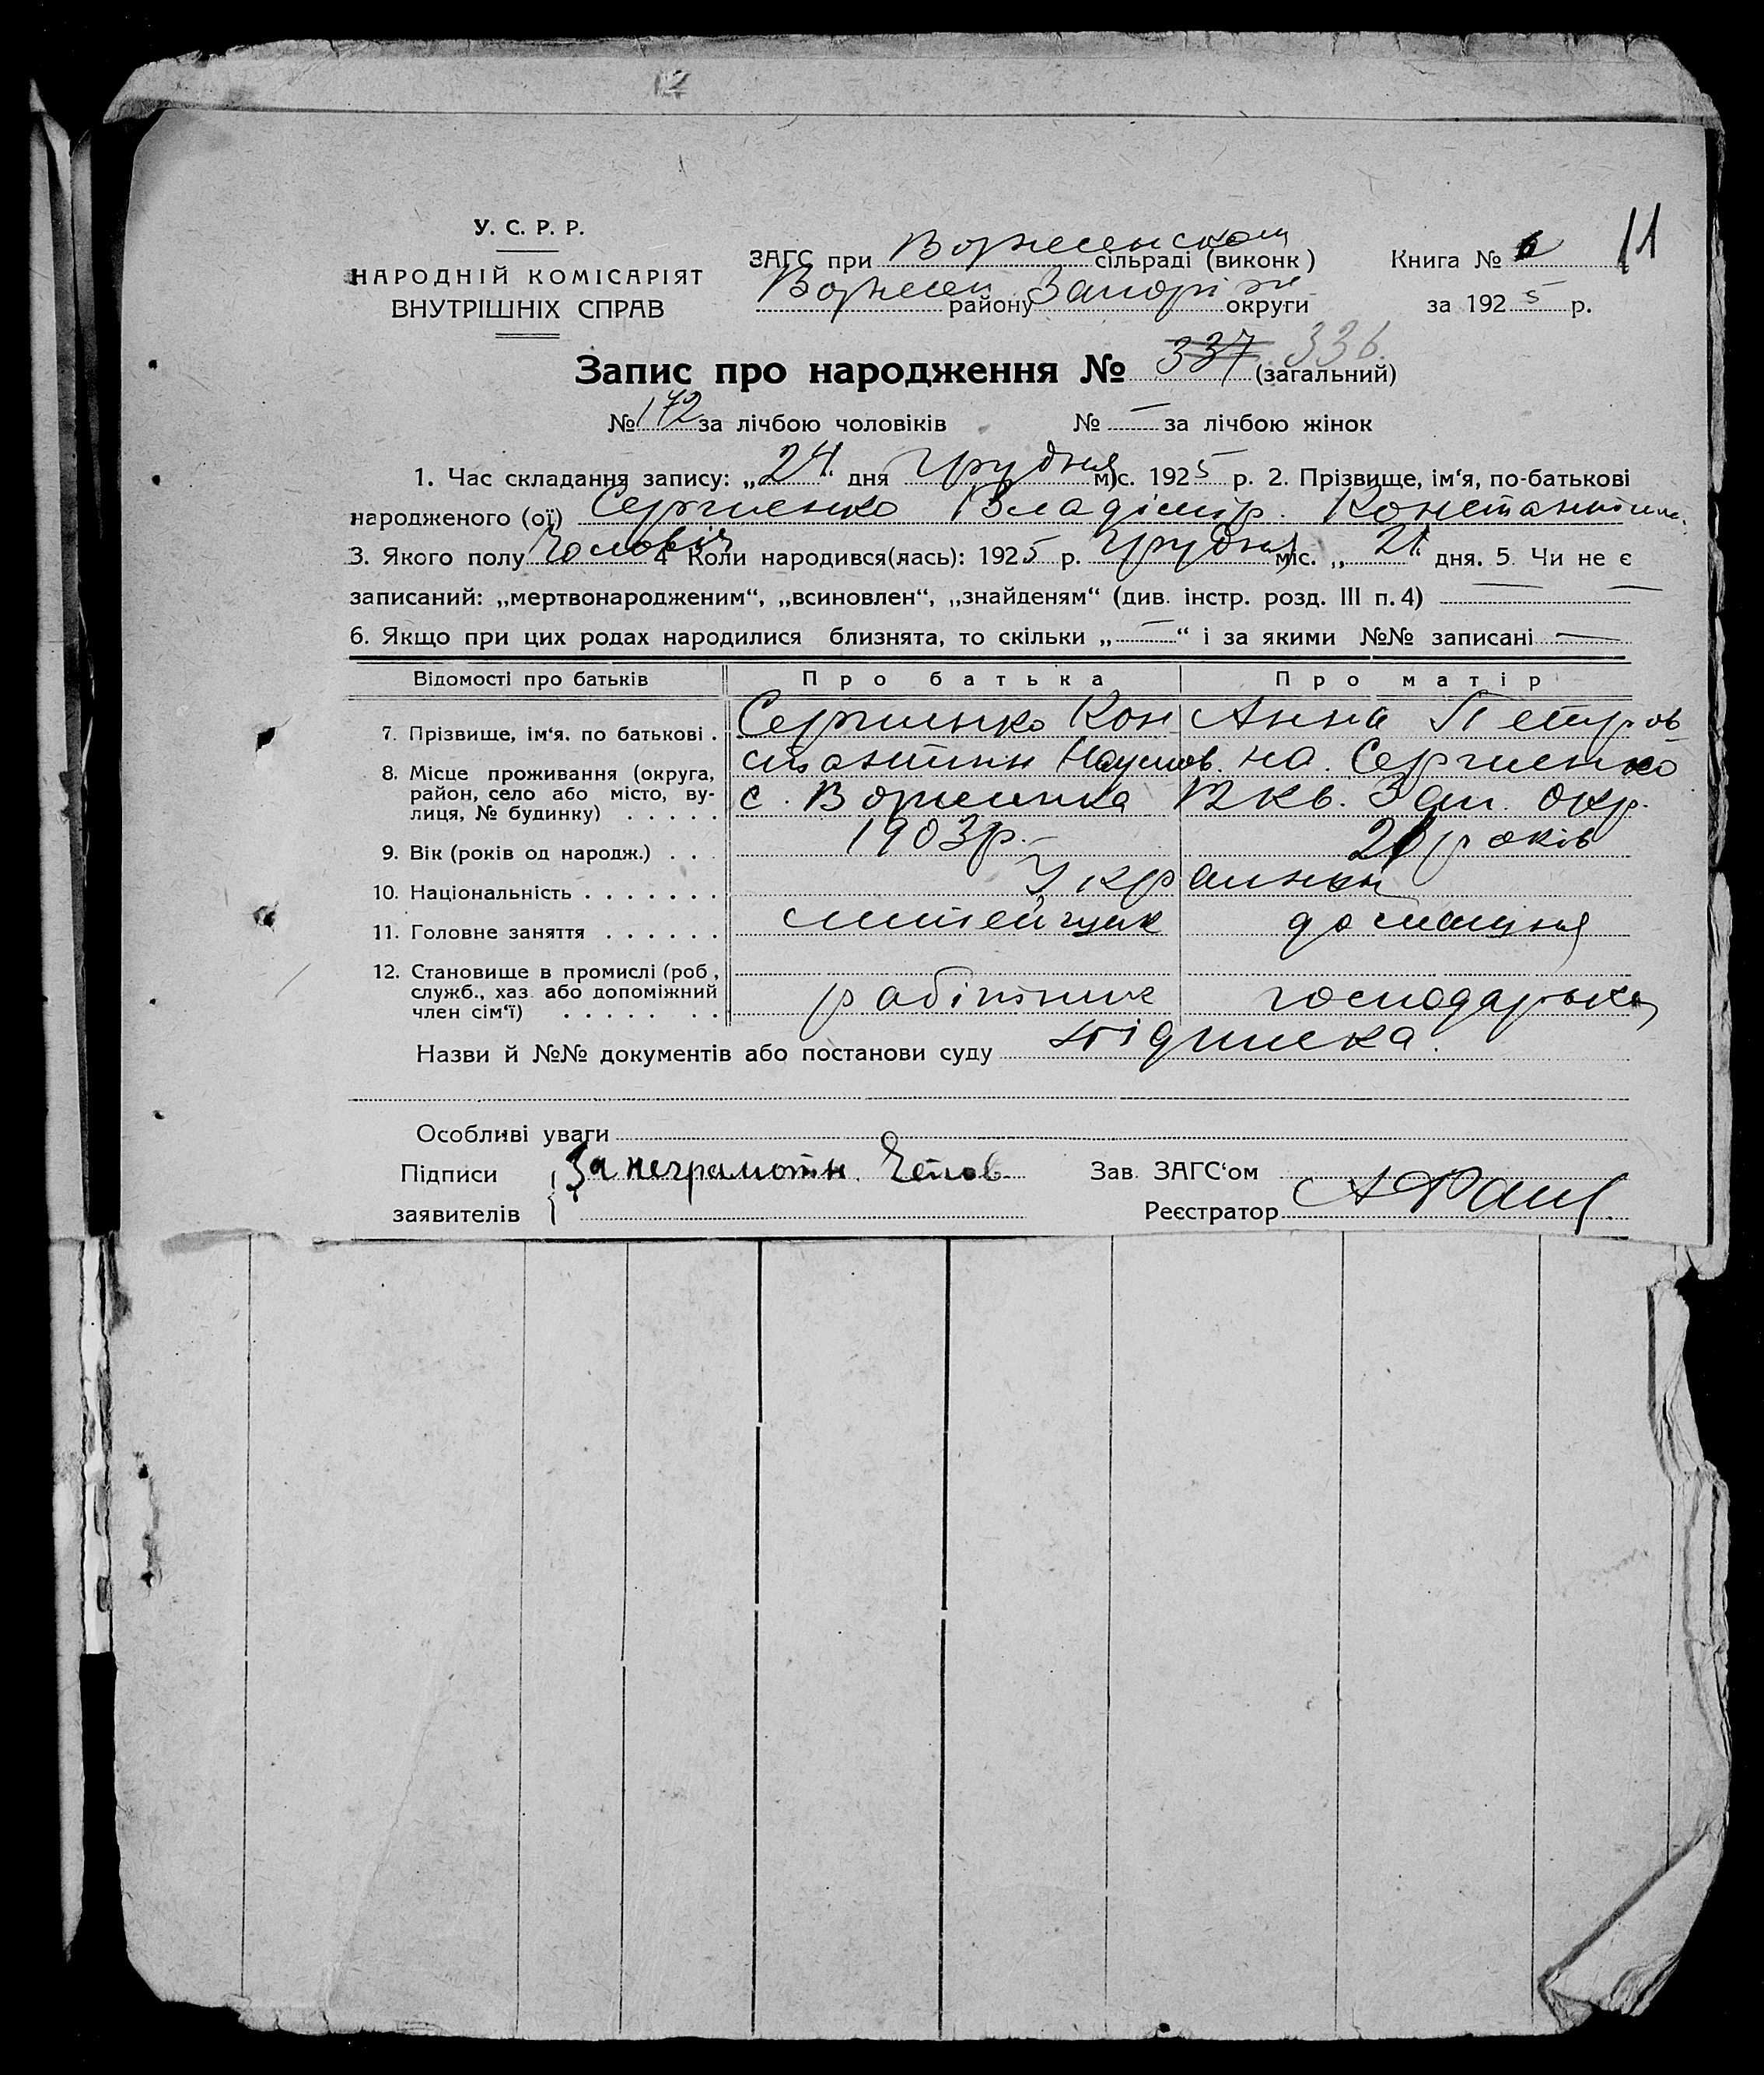 12
У. С. Р. Р.
НАРОДНІЙ КОМІСАРІЯТ
ВНУТРІШНІХ СПРАВ
ЗАГС при Вознесенском сільраді (виконк)
Вознесен району Запоріж округи
Книга № 6 11
за 1925 р.
Запис про народження № 337 336. (загальний)
№ 172 за лічбою чоловіків № — за лічбою жінок
1. Час складання запису: „24" дня Грудня міс. 1925 р. 2. Прізвище, ім'я, по-батькові
народженого (ої) Сергиенко Владімір. Константинов.
3. Якого полу Чоловіч 4 Коли народився(лась): 1925 р. Грудня міс. „21" дня. 5. Чи не є
записаний: „мертвонародженим", „всиновлен", „знайденям" (див. інстр. розд. III п. 4) —
6. Якщо при цих родах народилися близнята, то скільки „—" і за якими №№ записані —
Відомості про батьків Про батька Про матір
7. Прізвище, ім'я. по батькові . Сергиенко Кон Анна Петров
8. Місце проживання (округа, стантин Наумов. на. Сергиенко
район, село або місто, ву- с. Вознесенка Вкв. Зап. окр.
лиця, № будинку) . . . . .
9. Вік (років од народж.) . . . 1903р. 21 років
10. Національність . . . . . . . Украинцы
11. Головне заняття . . . . . . литейщик домашня
12. Становище в промислі (роб,
служб., хаз. або допоміжний робітник господарька
член сім'ї) . . . . . . .
Назви й №№ документів або постанови суду підписка.
Особливі уваги
Підписи За неграмотн. Зав. ЗАГС'ом
заявителів Реєстратор